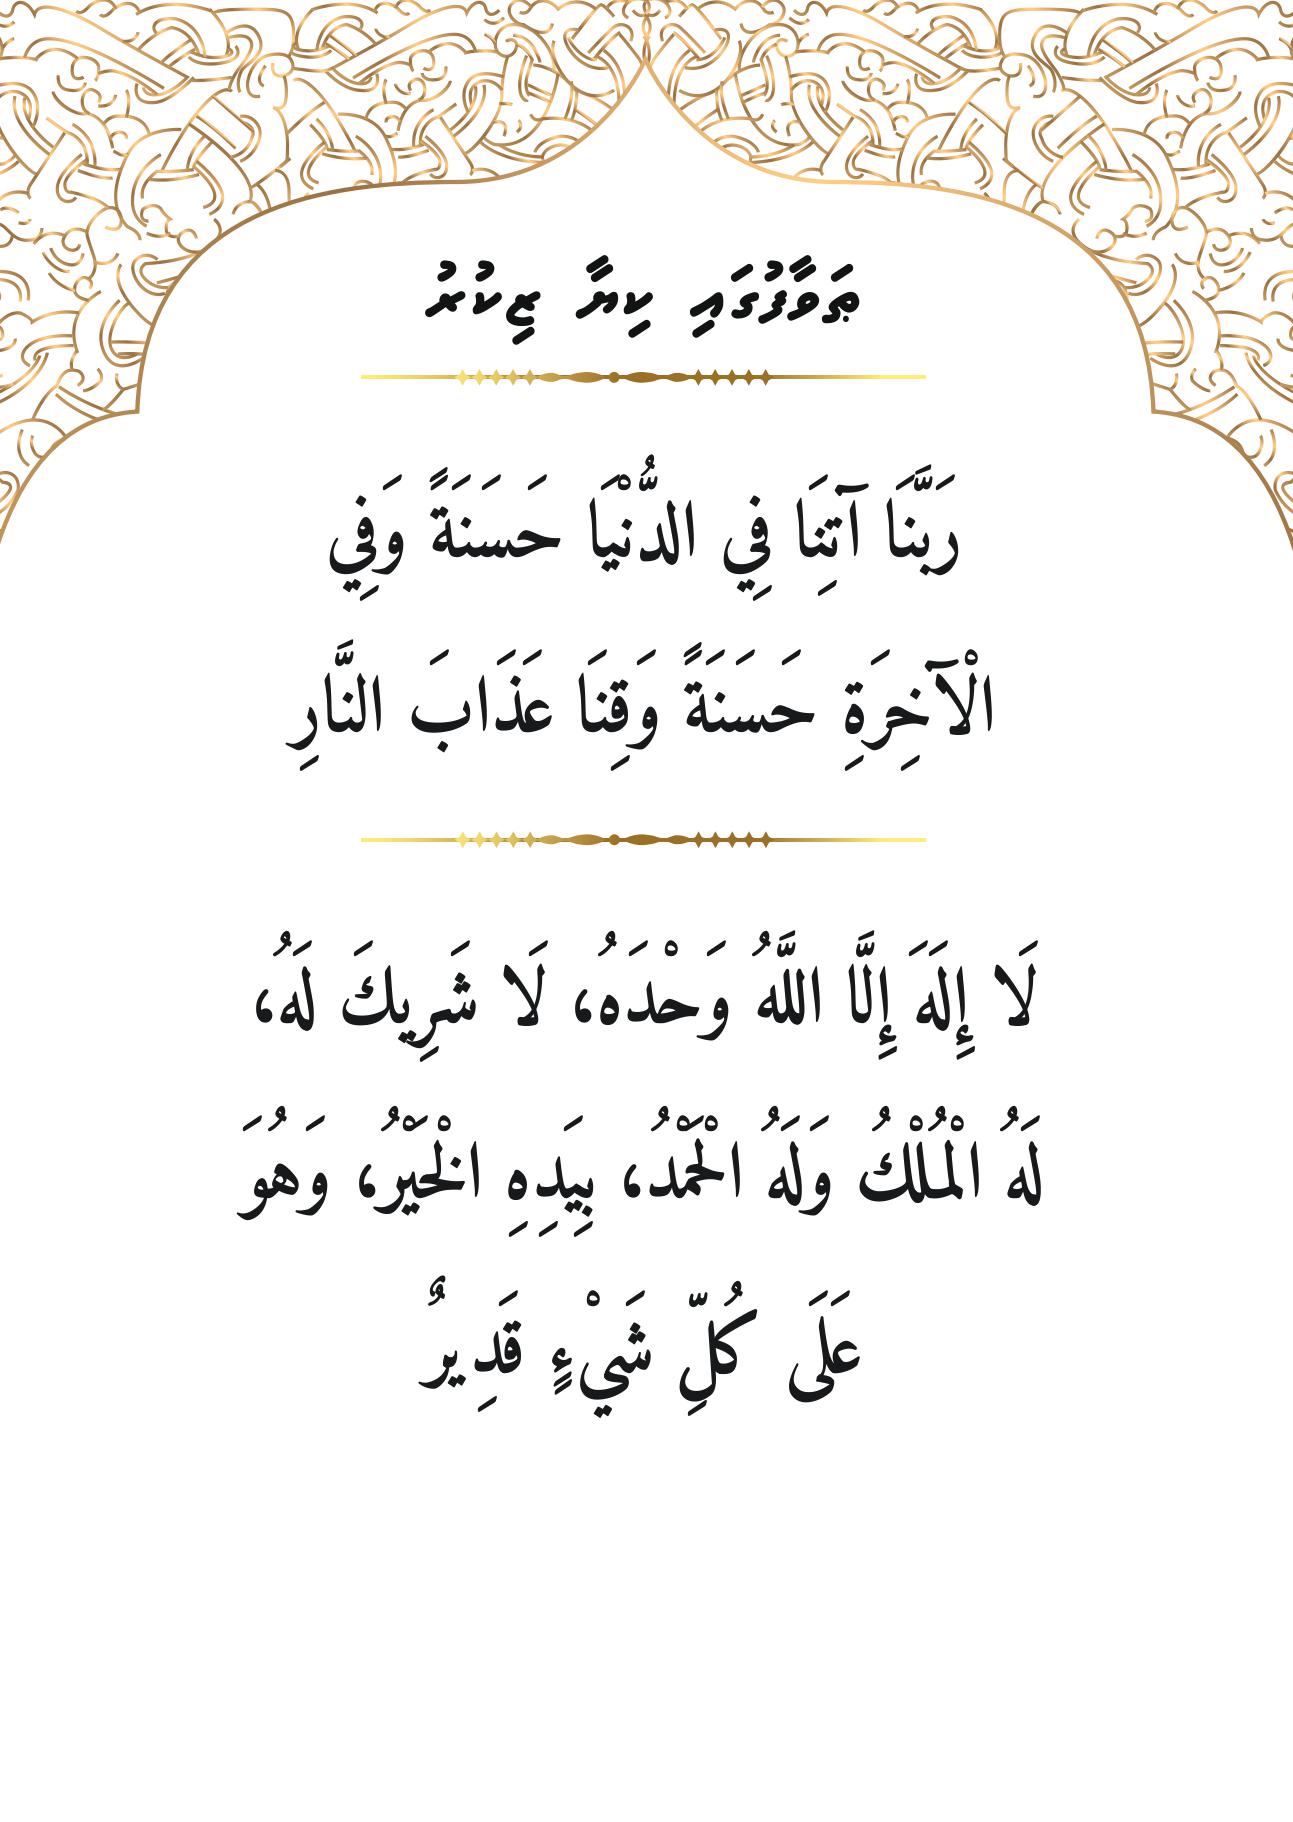 ޠަވާފުގައި ކިޔާ ޒިކުރު
رَبَّنَا آتِنَا فِي الدُّنْيَا حَسَنَةً وَفِي
الْآخِرَةِ حَسَنَةً وَقِنَا عَذَابَ النَّارِ
لَا إِلَهَ إِلَّا اللَّهُ وَحْدَهُ، لَا شَرِيكَ لَهُ،
لَهُ الْمُلْكُ وَلَهُ الْحَمْدُ، بِيَدِهِ الْخَيْرُ، وَهُوَ
عَلَى كُلِّ شَيْءٍ قَدِيرٌ